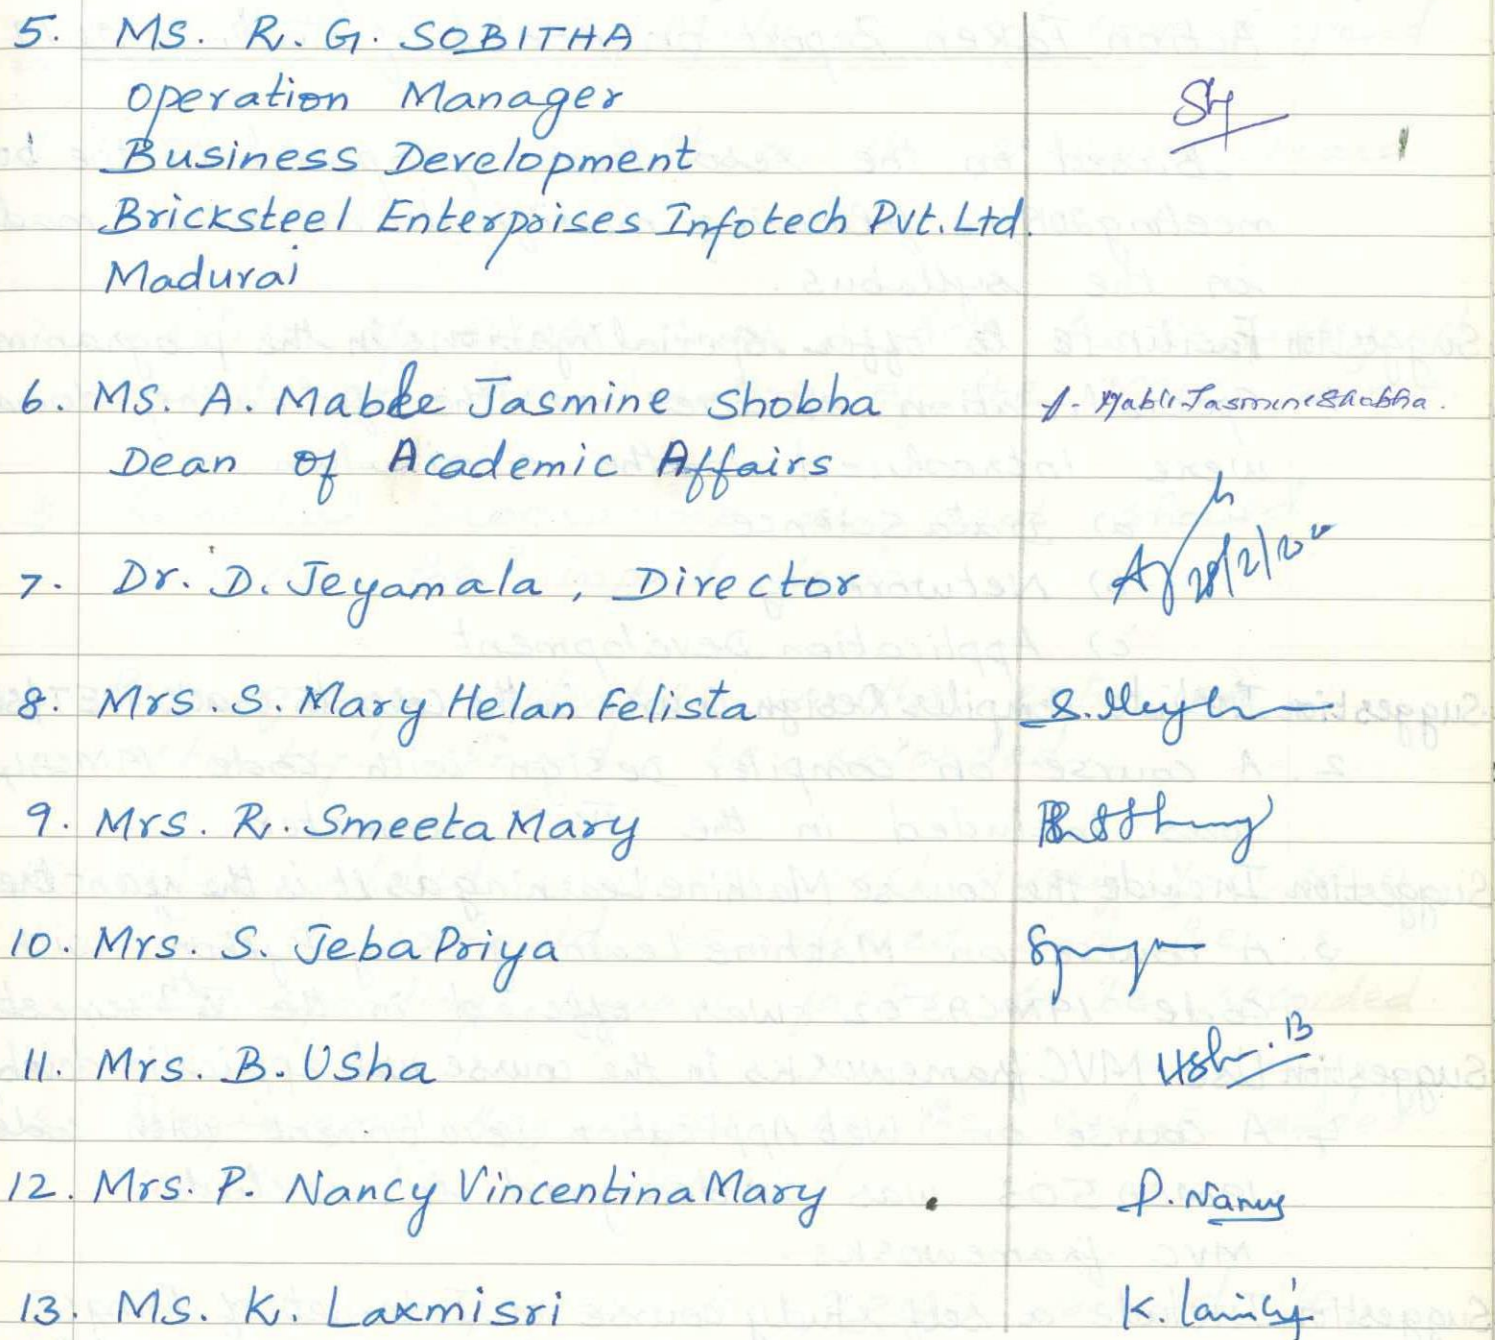 5. MS. R. G. SOBITHA
Operation Manager
Business Development
Bricksteel Enterprises Infotech Pvt. Ltd.
Madurai
6. MS. A. Mable Jasmine Shobha A. Mable Jasmine Shobha.
Dean of Academic Affairs
7. Dr. D. Jeyamala, Director 28/2/20
8. Mrs. S. Mary Helan Felista
9. Mrs. R. Smeeta Mary
10. Mrs. S. Jeba Priya
11. Mrs. B. Usha
12. Mrs. P. Nancy Vincentina Mary P. Nancy
13. Ms. K. Laxmisri